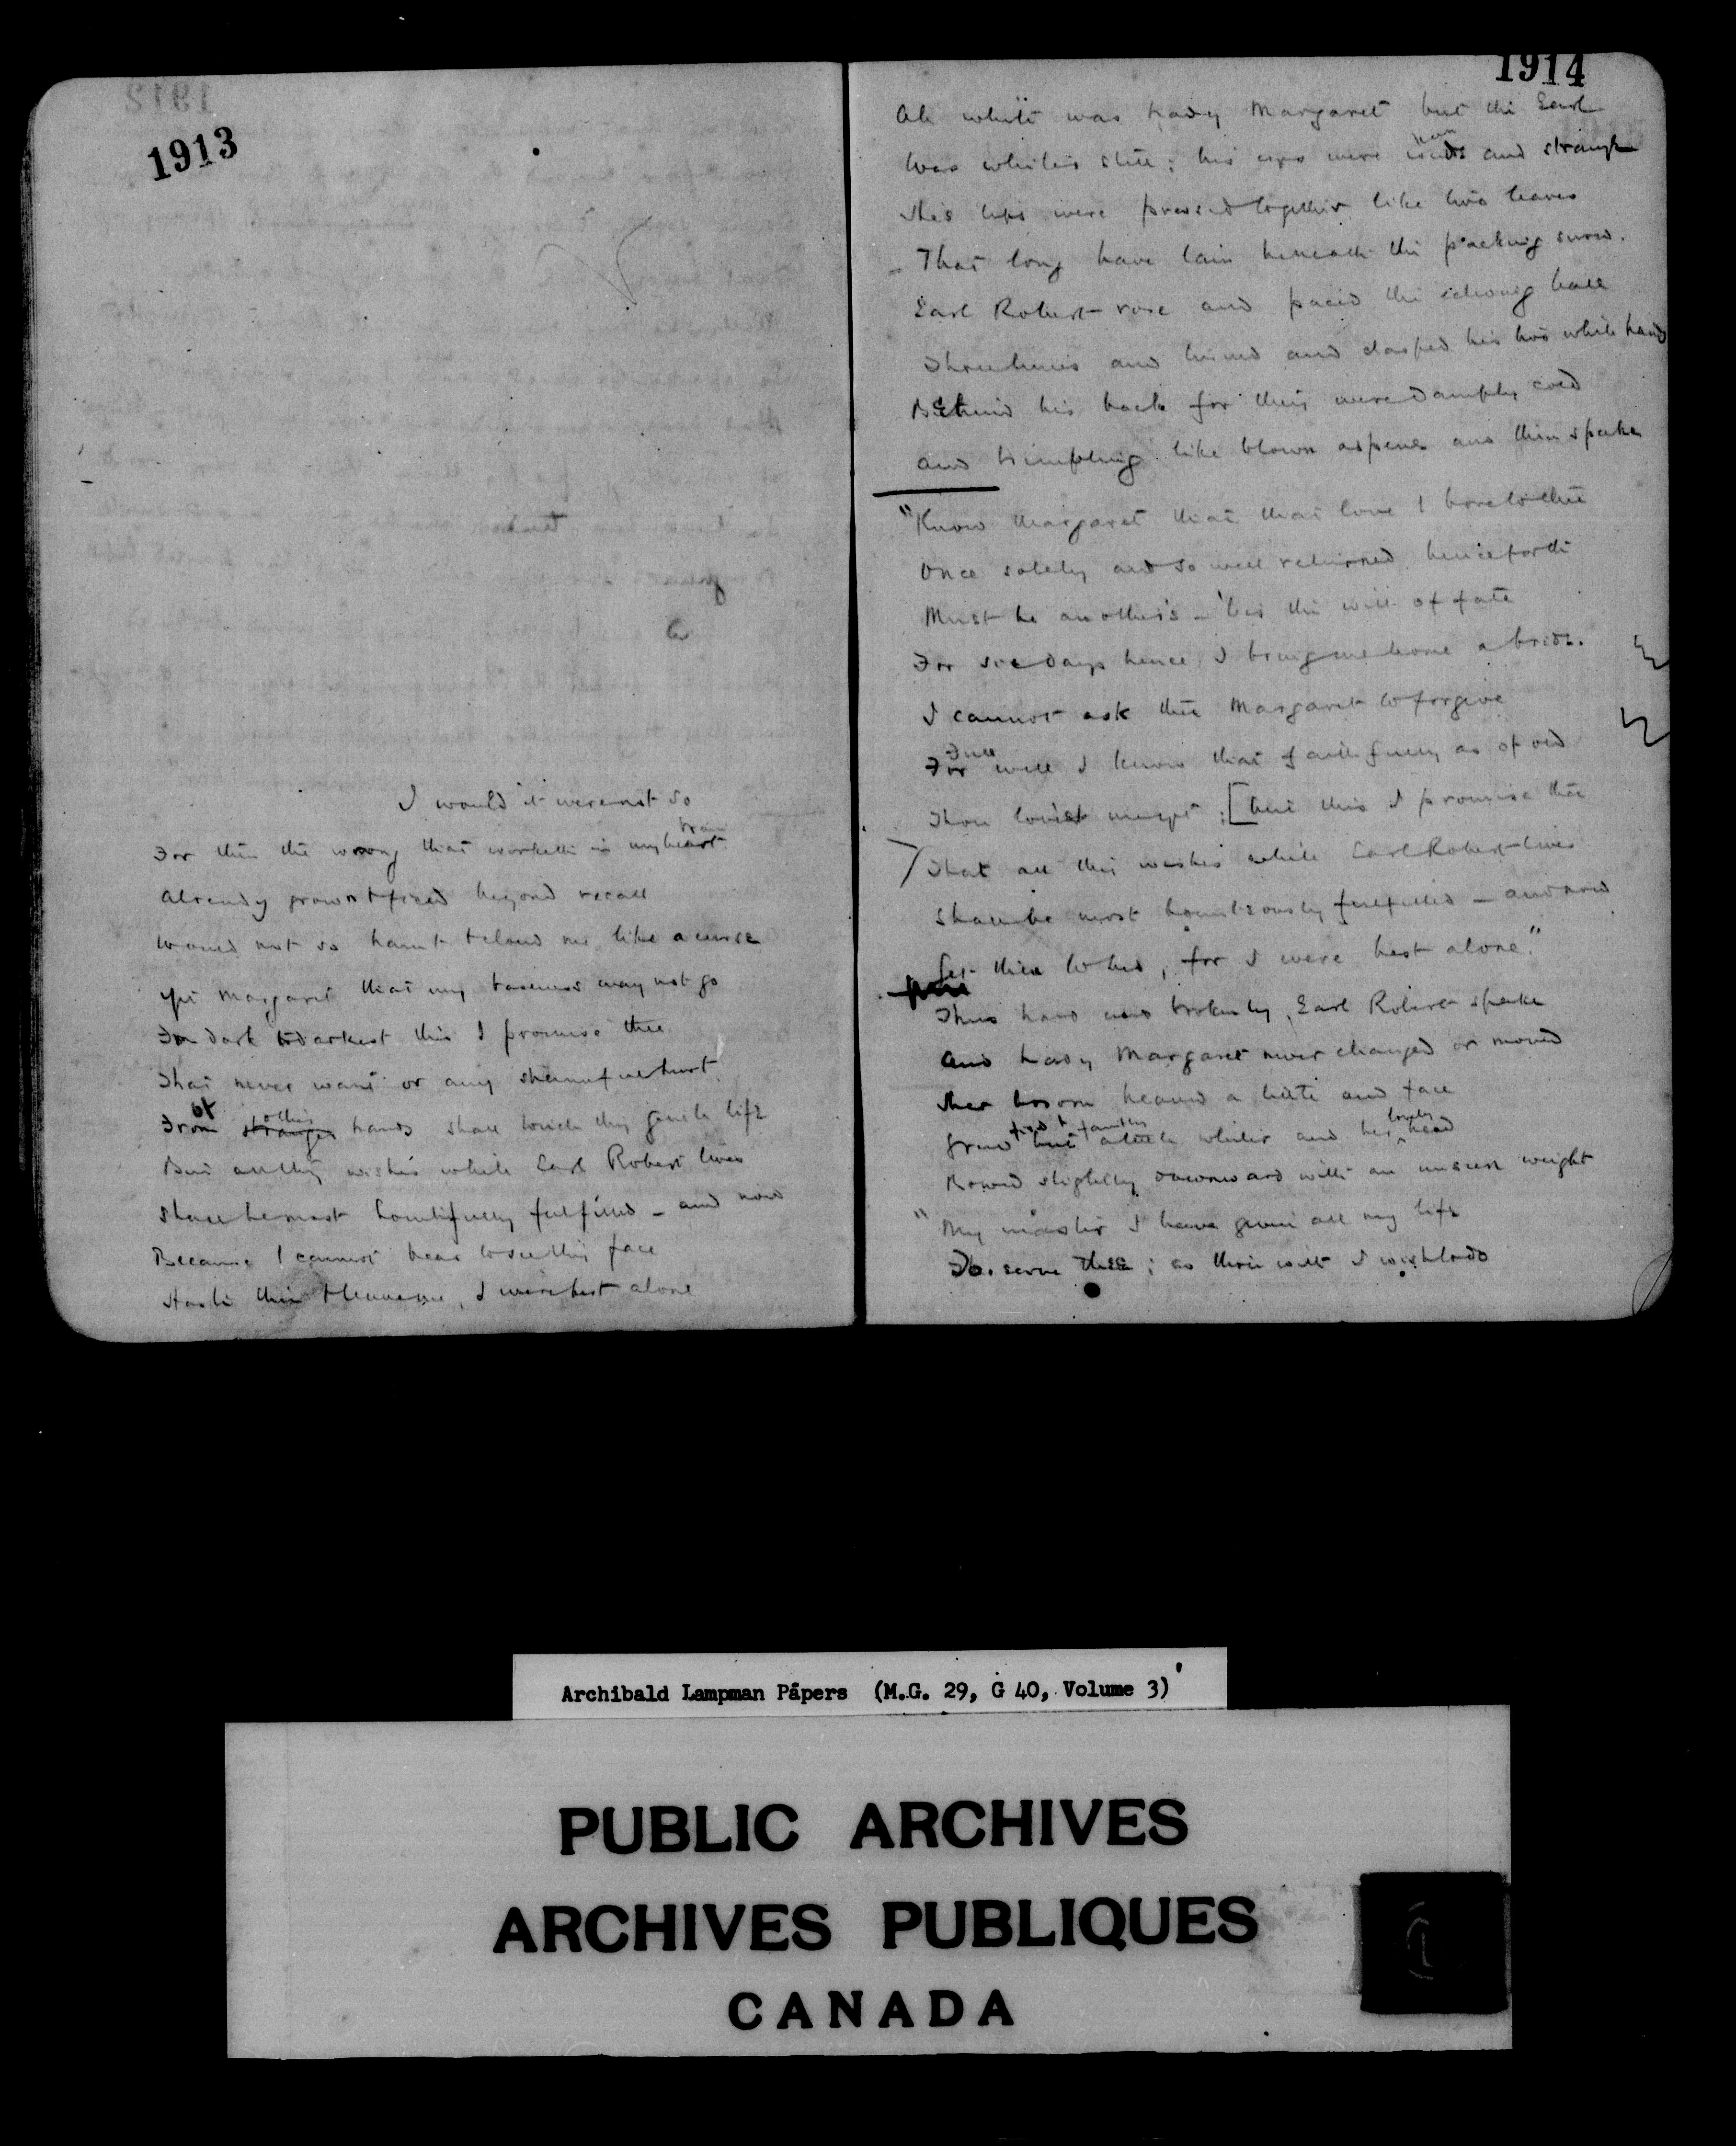 1913
I would it were not so
For then the wrong that worketh in my heart
brain
Already grown & fixed beyond recall
Would not so haunt & cloud me like a curse
Yet Margaret that my baseness may not go
From dark to darkest this I promise thee
That never want or any shameful hurt
From stranger hands shall touch thy gentle life
of other
But all thy wishes while Earl Robert lives
Shall be most bountifully fulfilled – and now
Because I cannot bear to see thy face
Haste thee hence, I were best alone
1914
Ah white was Lady Margaret but the Earl
Was whiter still: his eyes were and strange
His lips were pressed together like two leaves
That long have lain beneath the packing snow.
Earl Robert rose and paced the echoing hall
Three times and turned and clasped his two white hands
Behind his back for they were damply cold
And trembling like blown aspens and then spake
"Know Margaret that that love I bore to thee
Once solely and so well returned henceforth
Must be another's – 'tis the will of fate
For six days hence I bring me home a bride.
I cannot ask thee Margaret to forgive
Full
For well I know that faithfully as of old
Thou lovest me yet; [but this I promise thee
That all thy wishes while Earl Robert lives
Shall be most bounteously fulfilled – and now
Get thee to bed, for I were best alone."
Thus hard and brokenly, Earl Robert spake
And Lady Margaret never changed or moved
Her bosom heaved a little and face
Grew but a little whiter and her head
fixed & lovely
Bowed slightly downward with an unseen weight
"My master I have given all my life
To serve thee; as thou wilt I wish to do
Archibald Lampman Papers (M.G. 29, G 40, Volume 3)
PUBLIC ARCHIVES
ARCHIVES PUBLIQUES
CANADA